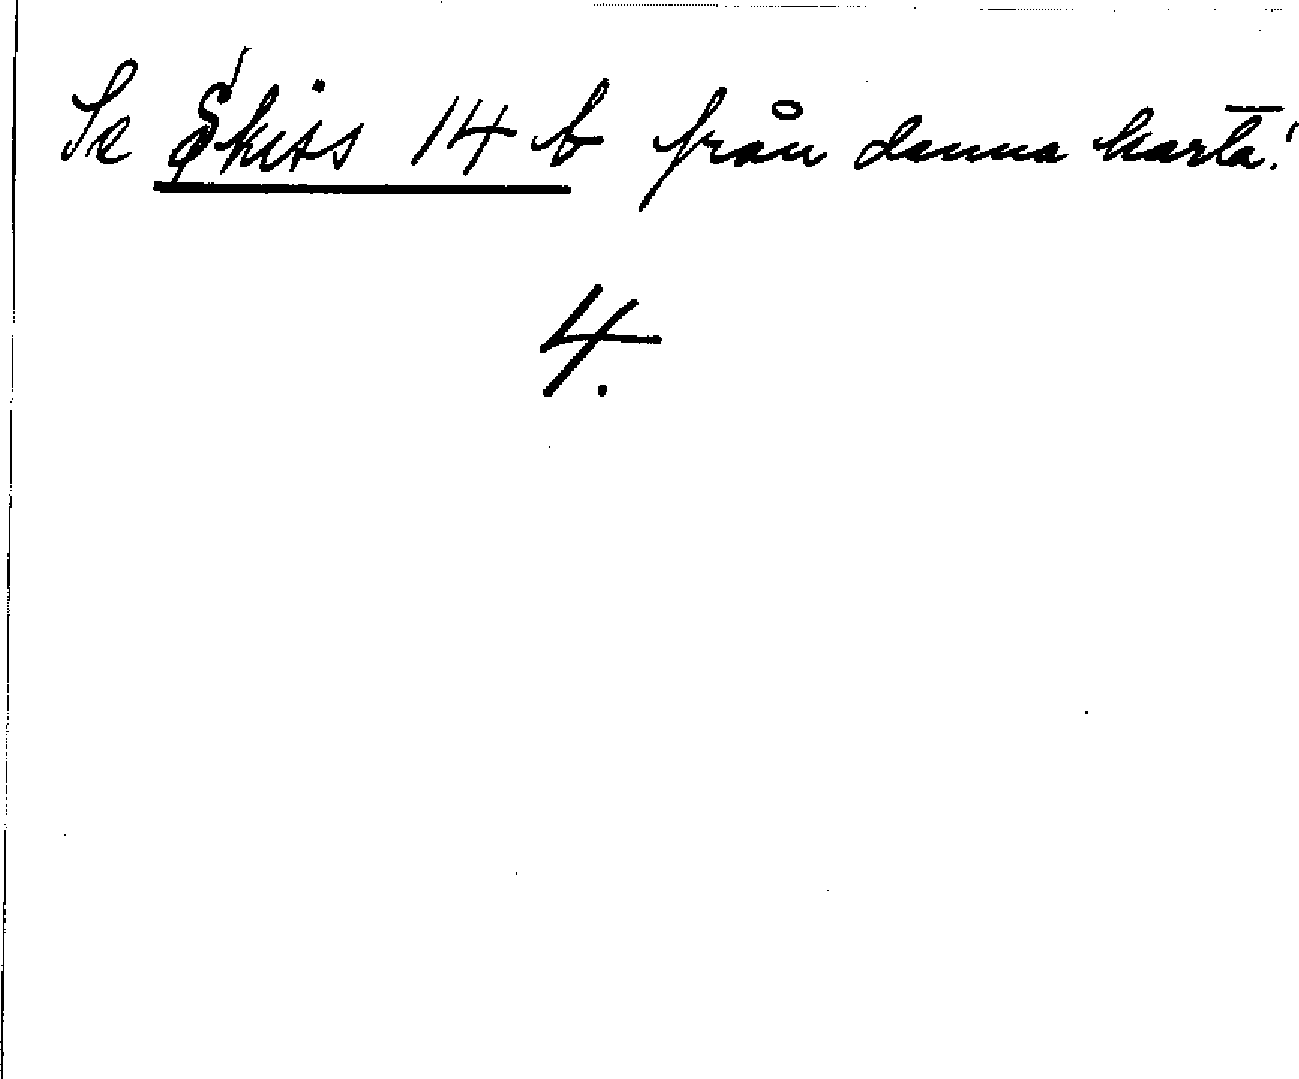 Se Skiss 14 b från denna karta!
4.